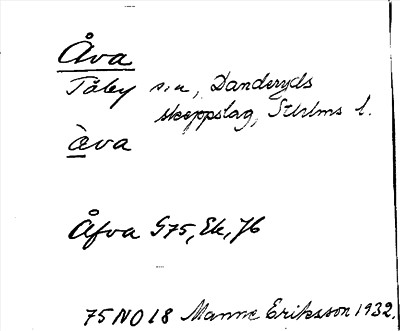 Åva
Täby sn, Danderyds
skeppslag, Sthlms l.
àva
Åfva G75, Ek, Jb
75 NO 18 Manne Eriksson 1932.